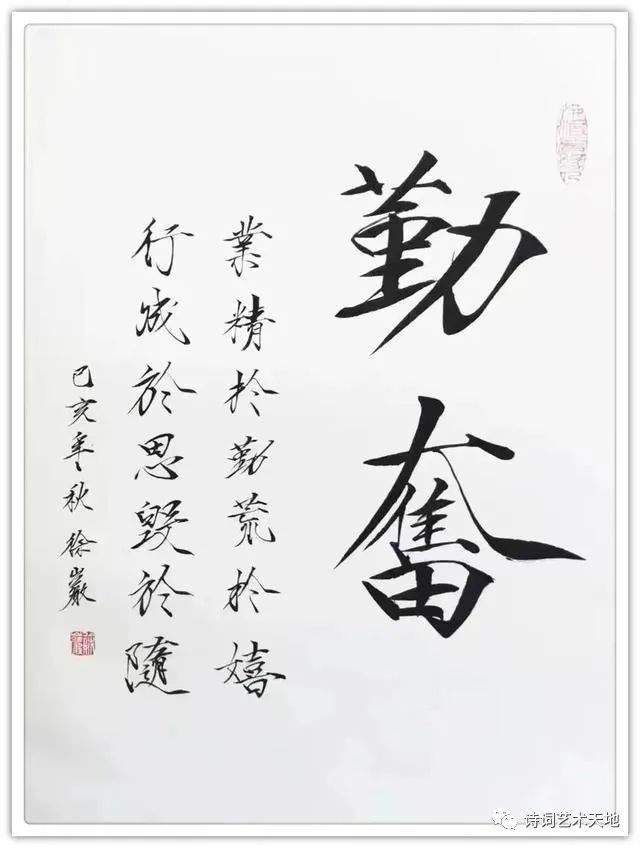 勤奮
業精於勤荒於嬉
行成於思毀於隨
己亥年秋徐巖
诗词艺术天地